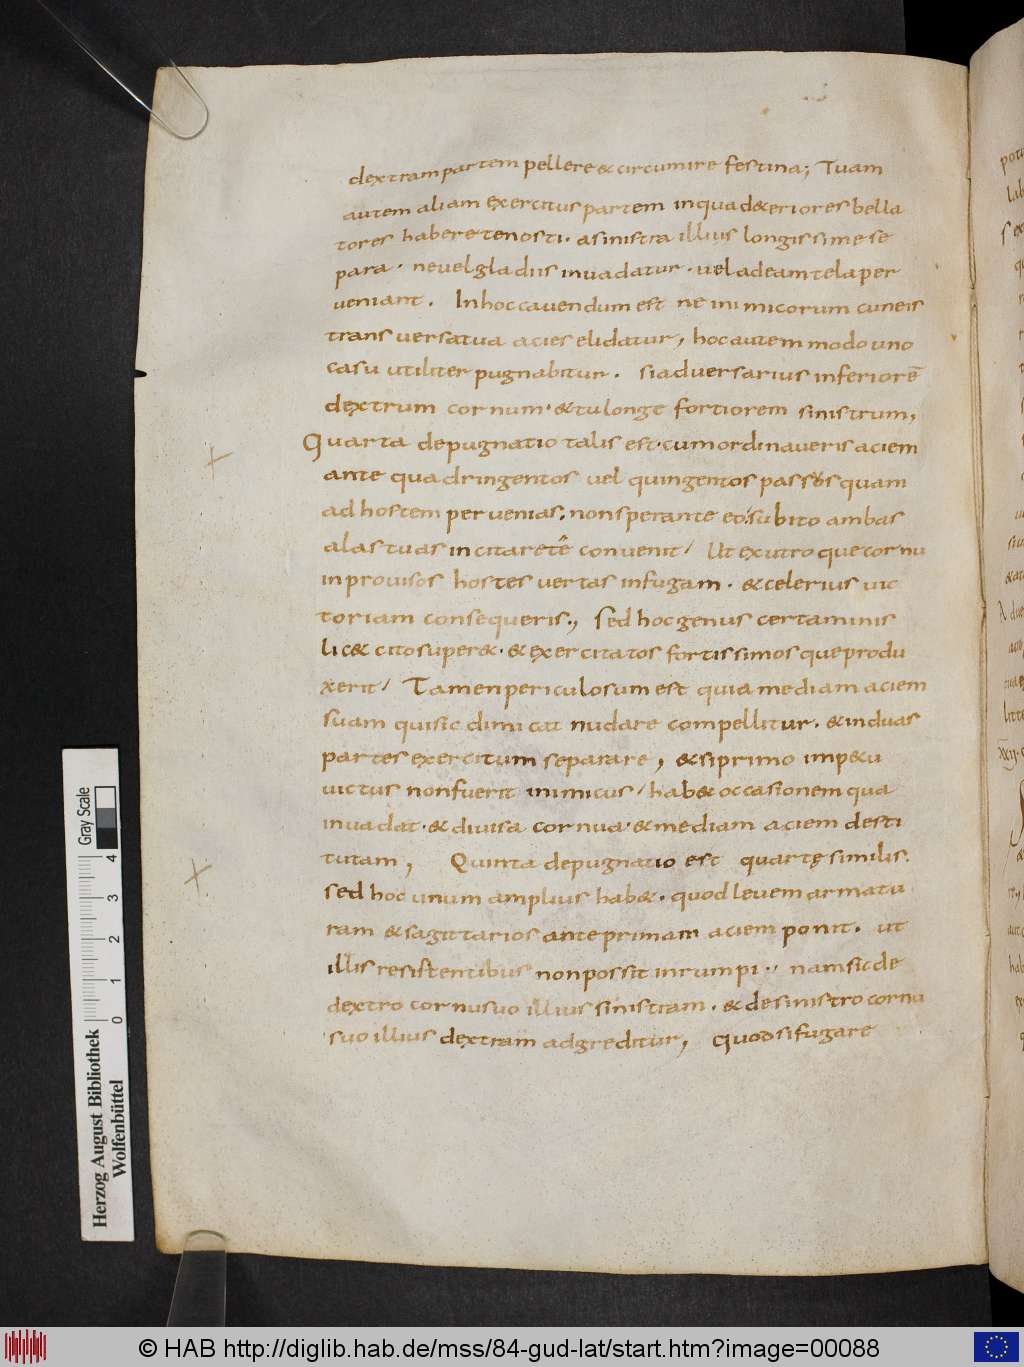 dextram partem pellere & circumire festina; Tuam
autem aliam exercitus partem in qua d&eriores bella
tores habere te nosti. a sinistra illius longissime se
para. ne vel gladiis invadatur. vel ad eam tela per
veniant. In hoc cavendum est ne inimicorum cuneis
transversa tua acies elidatur, hoc autem modo uno
casu utiliter pugnabitur. si adversarius inferiorē
dextrum cornum. & tu longe fortiorem sinistrum,
Quarta depugnatio talis est. cum ordinaveris aciem
ante quadringentos vel quingentos passos quam
ad hostem pervenias, non sperante eo. subito ambas
alas tuas incitare te convenit/ Ut ex utroque cornu
inprovisos hostes vertas in fugam. & celerius vic
toriam consequeris., sed hoc genus certaminis
lic& cito super&. & exercitatos fortissimosque produ
xerit/ Tamen periculosum est quia mediam aciem
suam qui sic dimicat nudare compellitur. & in duas
partes exercitum separare, & si primo imp&u
victus non fuerit inimicus/ hab& occasionem qua
invadat. & divisa cornua. & mediam aciem desti
tutam, Quinta depugnatio est quartę similis.
sed hoc unum amplius hab&. quod levem armatu
ram & sagittarios ante primam aciem ponit. ut
illis resistentibus non possit inrumpi., nam sic de
dextro cornu suo illius sinistram. & de sinistro cornu
suo illius dextram adgreditur, Quod si fugare
Herzog August Bibliothek
Wolfenbüttel
0 1 2 3 4
Gray Scale
© HAB http://diglib.hab.de/mss/84-gud-lat/start.htm?image=00088